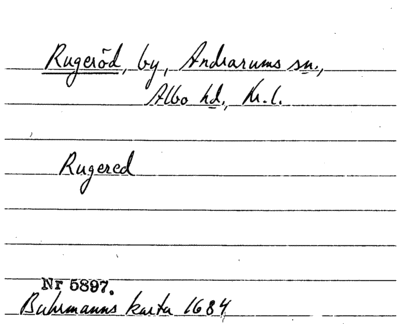 Rugeröd, by, Andrarums sn.,
Albo hd., Kr. l.
Rugered
Nr 5897.
Buhrmanns karta 1684